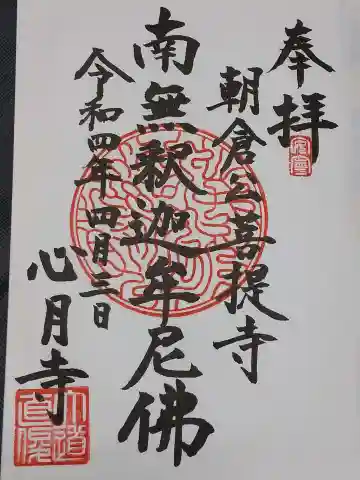 奉拝
朝倉公菩提寺
南無釈迦牟尼佛
令和四年 四月三日
心月寺